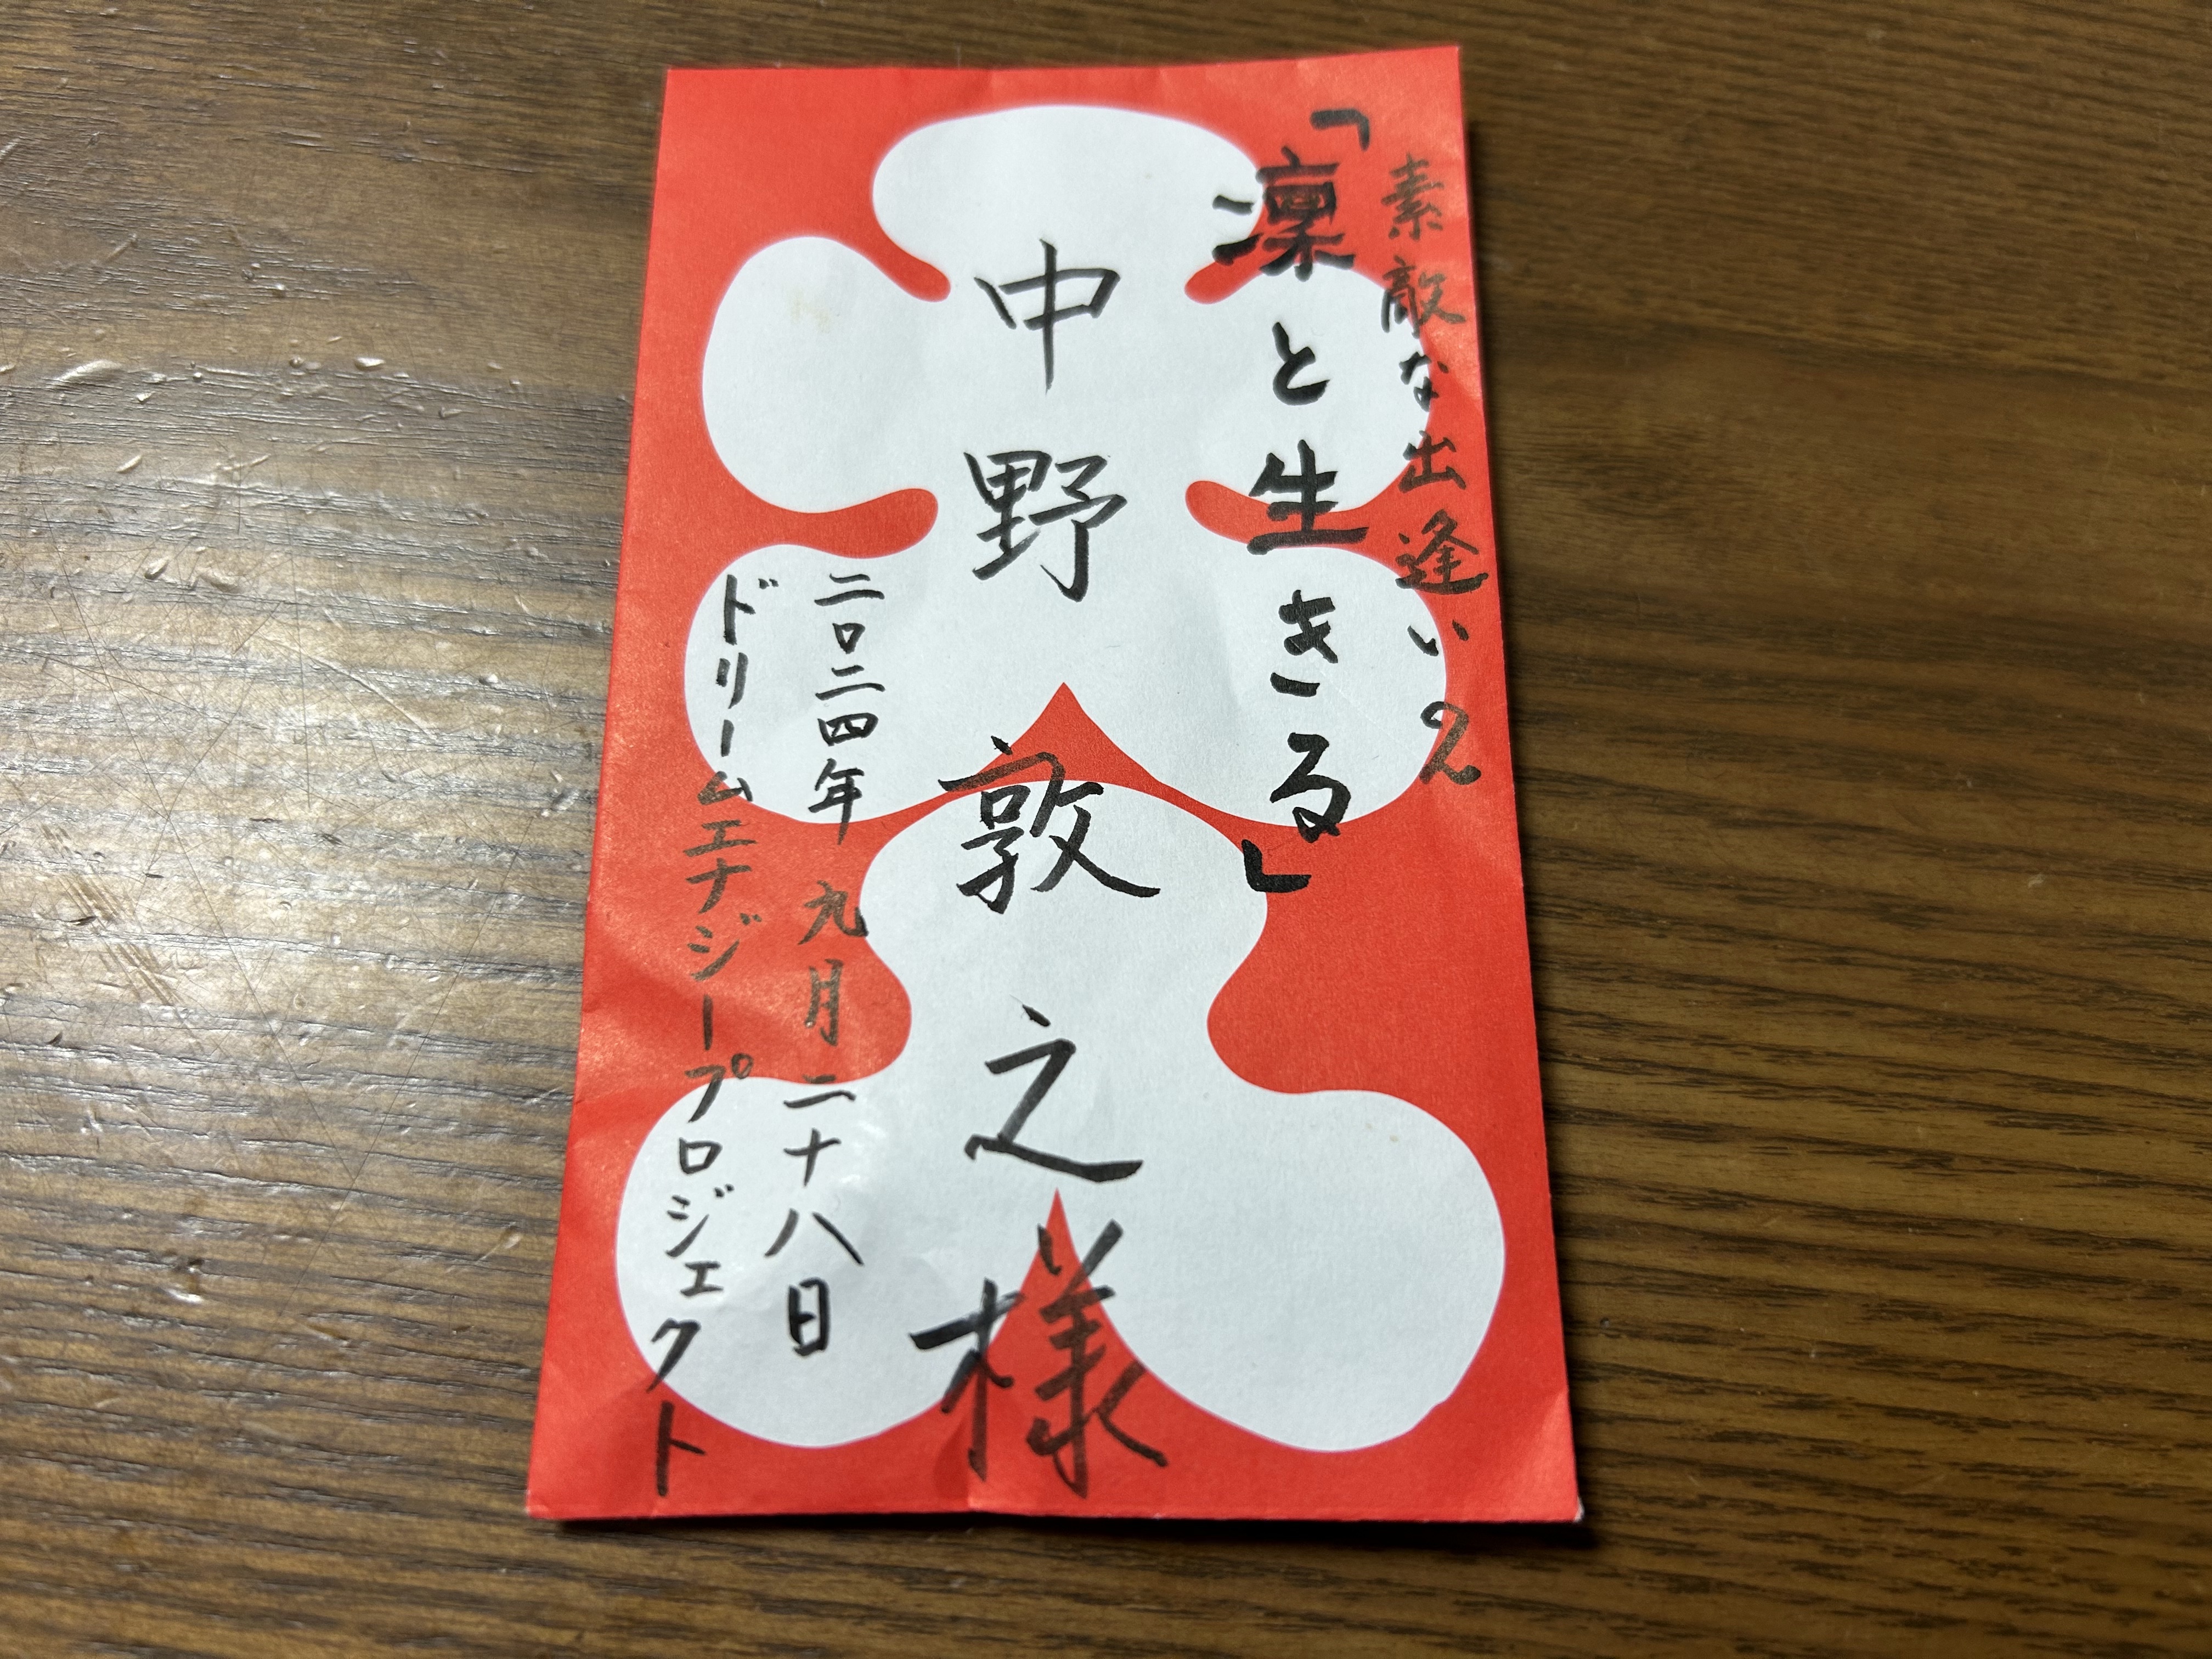 素敵な出逢いの
「凜と生きる」
中野敦之様
二〇二四年九月二十八日
ドリームエナジープロジェクト